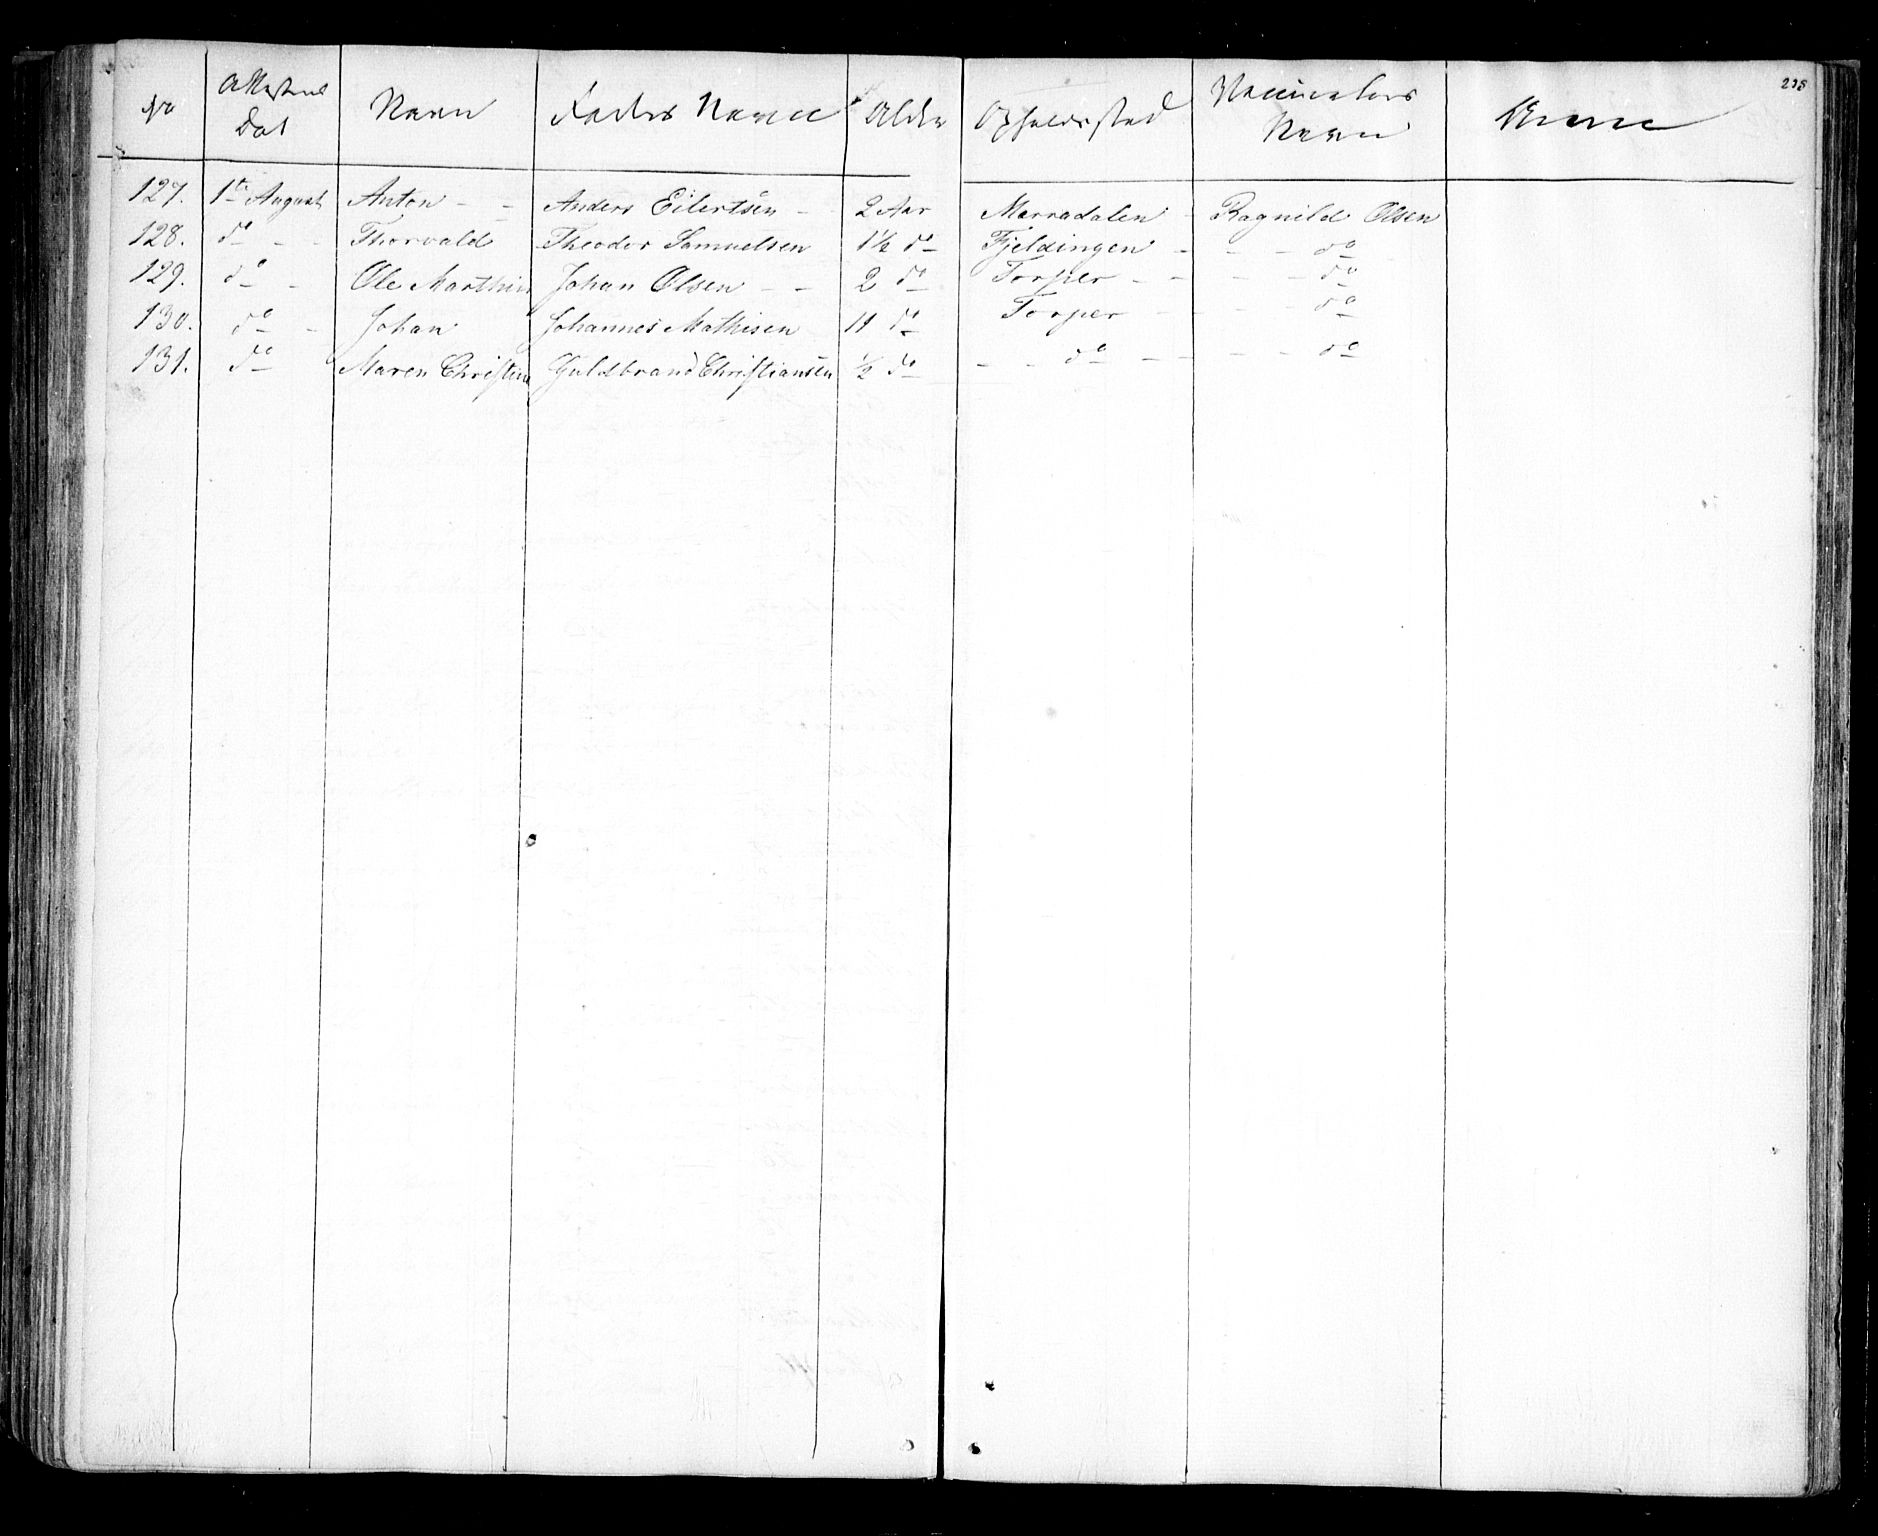 238
No Attestens Dat Navn Faders Navn Alder Opholdssted Vaccinators Navn Anm
127. 1te August Anton - - Anders Eilertsen - 2 Aar Marradalen - Ragnild Olsen
128. do - - Thorvald Theodor Samuelsen 1½ do Fjeldingen - - - do
129. do - Ole Marthin Johan Olsen - - 2 do Torper - - - - do
130. do - Johan Johannes Mathisen 11 do Torper - - - - do
131. do Maren Christine Guldbrand Christiansen ½ do - - do - - - - do